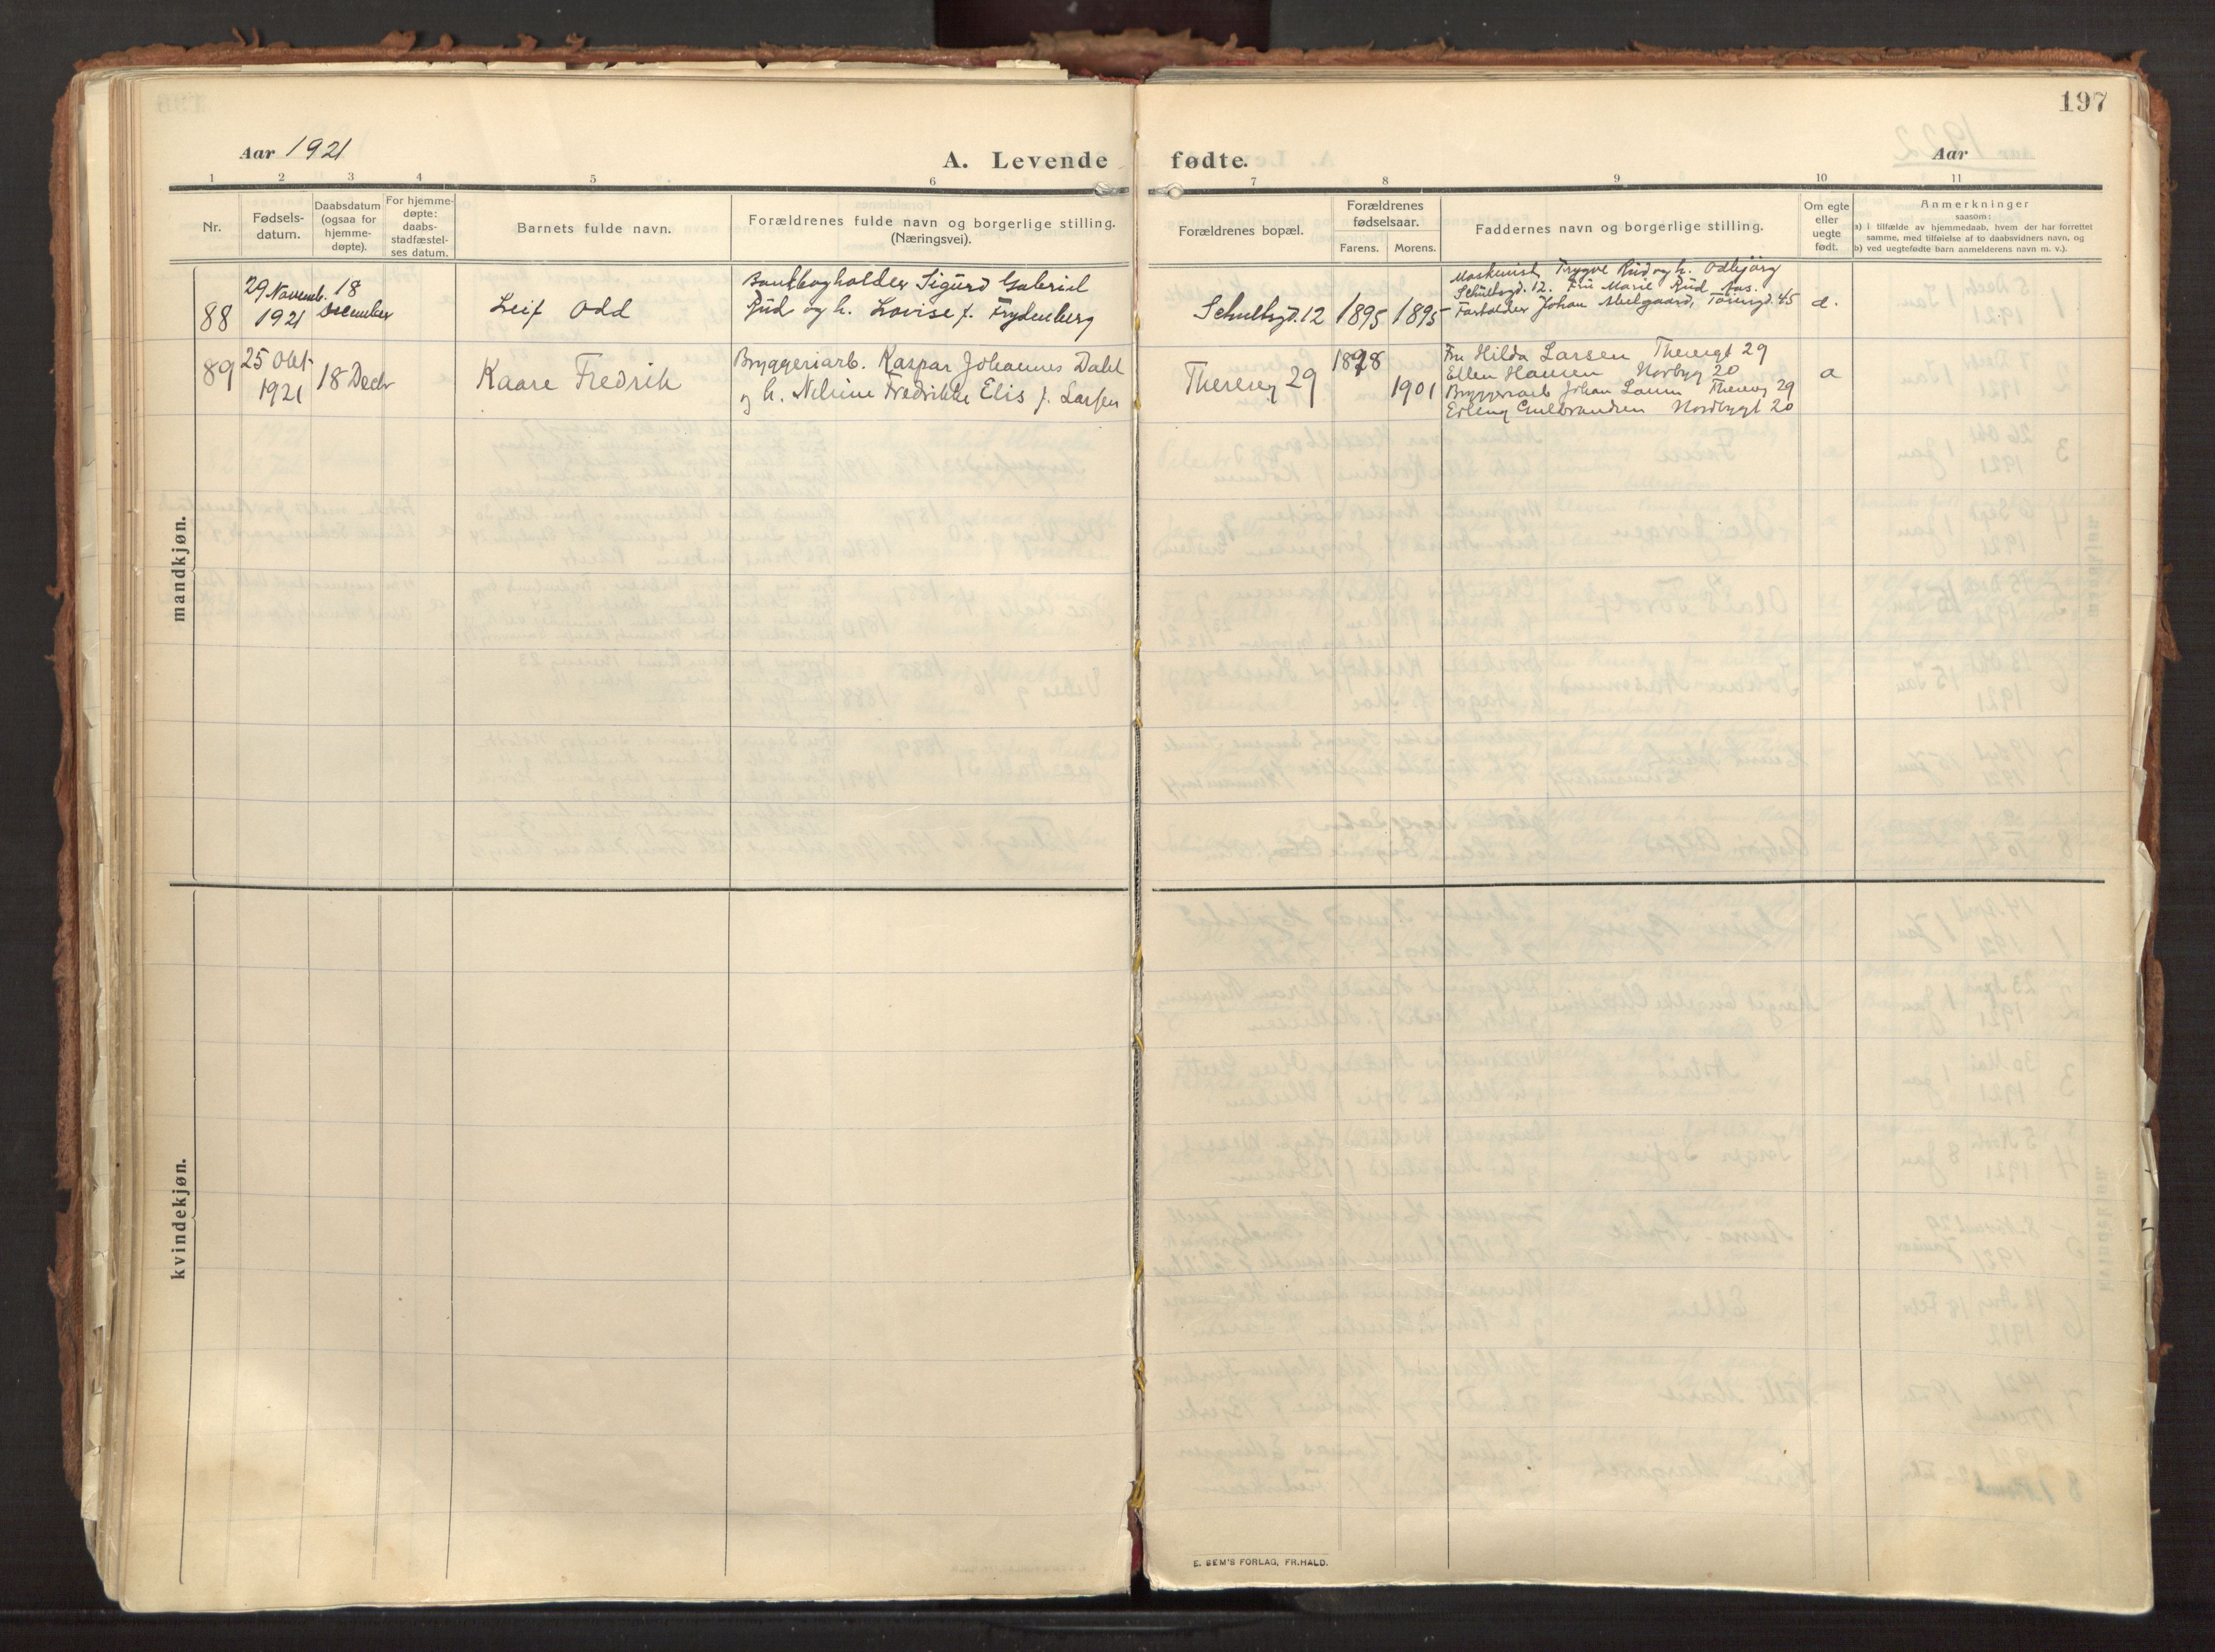 197
Aar 1921
A. Levende fødte.
Aar
1 2 3 4 5 6 7 8 9 10 11
Nr.
Fødsels-
datum.
Daabsdatum
(ogsaa for
hjemme-
døpte).
For hjemme-
døpte:
daabs-
stadfæstel-
ses datum.
Barnets fulde navn.
Forældrenes fulde navn og borgerlige stilling.
(Næringsvei).
Forældrenes bopæl.
Forældrenes
fødselsaar.
Farens. Morens.
Faddernes navn og borgerlige stilling.
Om egte
eller
uegte
født.
Anmerkninger
saasom:
a) i tilfælde av hjemmedaab, hvem der har forrettet
samme, med tilføielse av to daabsvidners navn, og
b) ved uegtefødte barn anmelderens navn m. v.).
mandkjøn.
88
29 Novemb.
1921
18
December
Leif Odd
Bankbogholder Sigurd Gabriel
Rud og h. Lovise f. Frydenberg
Schultzgd. 12
1895 1895
Maskinist Trygve Rud og h. Odbjørg
Schultzgd. 12. Fru Marie Rud Aas.
Forvalter Johan Melgaard,
45
e.
89
25 Okt
1921
18 Decbr
Kaare Fredrik
Bryggeriarb. Kaspar Johannes Dahl
og h. Fredrikke Elis f. Larsen
Theresg 29
1898
1901
Fru Hilda Larsen Theresgt 29
Ellen Hansen Norbyg 20
Bryggeriarb Johan Larsen Theresg 29
Erling Gulbrandsen Nordbygt 20
e
kvindekjøn.
E. SEM'S FORLAG, FR.HALD.